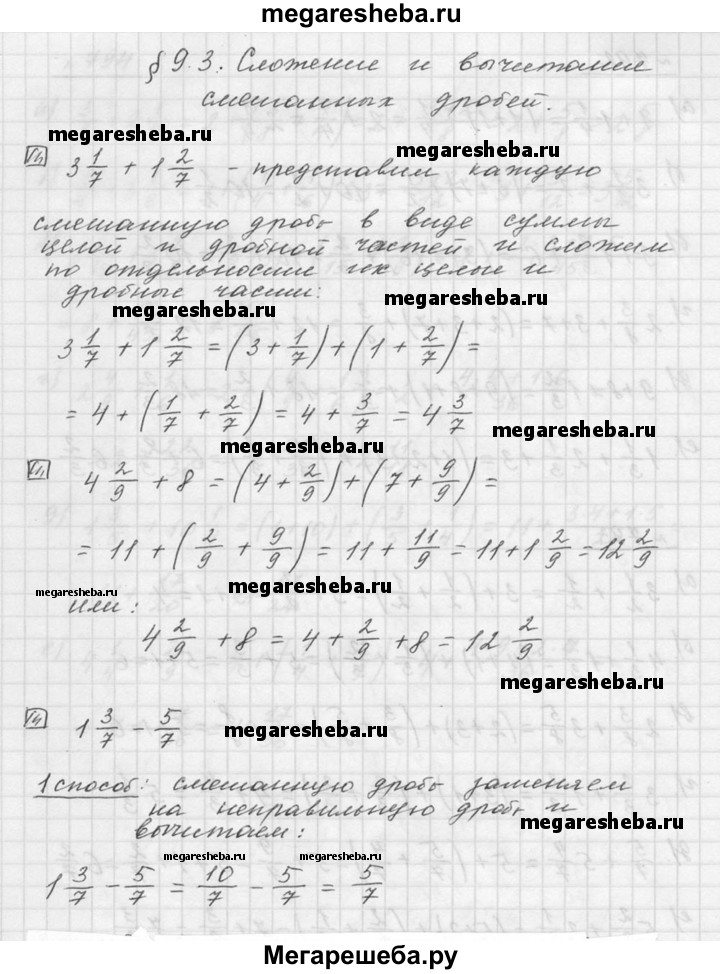 megaresheba.ru
§ 9.3. Сложение и вычитание
смешанных дробей.
megaresheba.ru megaresheba.ru
3 1/7 + 1 2/7 - представим каждую
смешанную дробь в виде суммы
целой и дробной частей и сложим
по отдельности их целые и
дробные части:
megaresheba.ru megaresheba.ru
3 1/7 + 1 2/7 = (3 + 1/7) + (1 + 2/7) =
= 4 + (1/7 + 2/7) = 4 + 3/7 = 4 3/7
megaresheba.ru megaresheba.ru
4 2/9 + 8 = (4 + 2/9) + (7 + 9/9) =
= 11 + (2/9 + 9/9) = 11 + 11/9 = 11 + 1 2/9 = 12 2/9
megaresheba.ru megaresheba.ru
или:
4 2/9 + 8 = 4 + 2/9 + 8 = 12 2/9
megaresheba.ru
1 3/7 - 5/7 megaresheba.ru
1 способ: смешанную дробь заменяем
на неправильную дробь и
вычитаем: megaresheba.ru
megaresheba.ru megaresheba.ru
1 3/7 - 5/7 = 10/7 - 5/7 = 5/7
Мегарешеба.ру